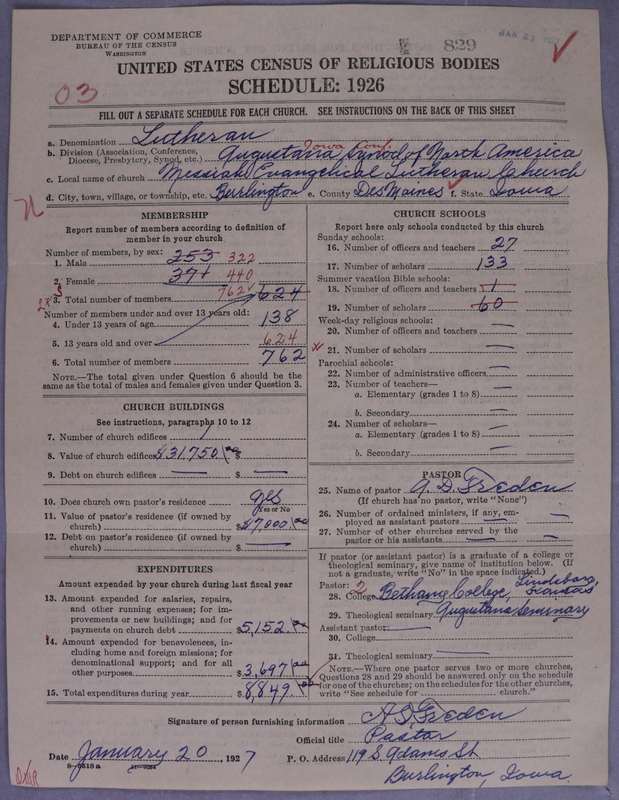 DEPARTMENT OF COMMERCE
BUREAU OF THE CENSUS
WASHINGTON
829
JAN 21
UNITED STATES CENSUS OF RELIGIOUS BODIES
SCHEDULE: 1926
03
FILL OUT A SEPARATE SCHEDULE FOR EACH CHURCH. SEE INSTRUCTIONS ON THE BACK OF THIS SHEET
a. Denomination Lutheran
Iowa Conf.
b. Division (Association, Conference, Diocese, Presbytery, Synod, etc.) Augustana Synod of North America
c. Local name of church Messiah Evangelical Lutheran Church
d. City, town, village, or township, etc. Burlington e. County Des Moines f. State Iowa
MEMBERSHIP
Report number of members according to definition of
member in your church
Number of members, by sex:
1. Male 253 322
2. Female 371 440
3. Total number of members 762 624
Number of members under and over 13 years old:
4. Under 13 years of age 138
5. 13 years old and over 624
6. Total number of members 762
NOTE.—The total given under Question 6 should be
same as the total of males and females given under Question 3.
CHURCH BUILDINGS
See instructions, paragraphs 10 to 12
7. Number of church edifices 1
8. Value of church edifices $31,750 00 $
9. Debt on church edifices — $ —
10. Does church own pastor's residence yes
Yes or No
11. Value of pastor's residence (if owned by
church) $7,000 00
12. Debt on pastor's residence (if owned by
church) $ —
EXPENDITURES
Amount expended by your church during last fiscal year
13. Amount expended for salaries, repairs,
and other running expenses; for im-
provements or new buildings; and for
payments on church debt $5,152.00
14. Amount expended for benevolences, in-
cluding home and foreign missions; for
denominational support; and for all
other purposes $3,697 00
15. Total expenditures during year $8,849 00
CHURCH SCHOOLS
Report here only schools conducted by this church
Sunday schools:
16. Number of officers and teachers 27
17. Number of scholars 133
Summer vacation Bible schools:
18. Number of officers and teachers 1
19. Number of scholars 60
Week-day religious schools:
20. Number of officers and teachers —
21. Number of scholars —
Parochial schools:
22. Number of administrative officers —
23. Number of teachers—
a. Elementary (grades 1 to 8) —
b. Secondary —
24. Number of scholars—
a. Elementary (grades 1 to 8) —
b. Secondary —
PASTOR
25. Name of pastor A. D. Freden
(If church has no pastor, write "None")
26. Number of ordained ministers, if any, em-
ployed as assistant pastors — —
27. Number of other churches served by the
pastor or his assistants — —
If pastor (or assistant pastor) is a graduate of a college or
theological seminary, give name of institution below. (If
not a graduate, write "No" in the space indicated.)
Pastor: 2
28. College Bethany College, Lindsborg, Kansas
29. Theological seminary Augustana Seminary
Assistant pastor: —
30. College —
31. Theological seminary —
NOTE.—Where one pastor serves two or more churches,
Questions 28 and 29 should be answered only on the schedule
for one of the churches; on the schedules for the other churches,
write "See schedule for church."
Signature of person furnishing information A. D. Freden
Official title Pastor
Date January 20, 1927 P. O. Address 119 S. Adams St
8—8518a
Burlington, Iowa.